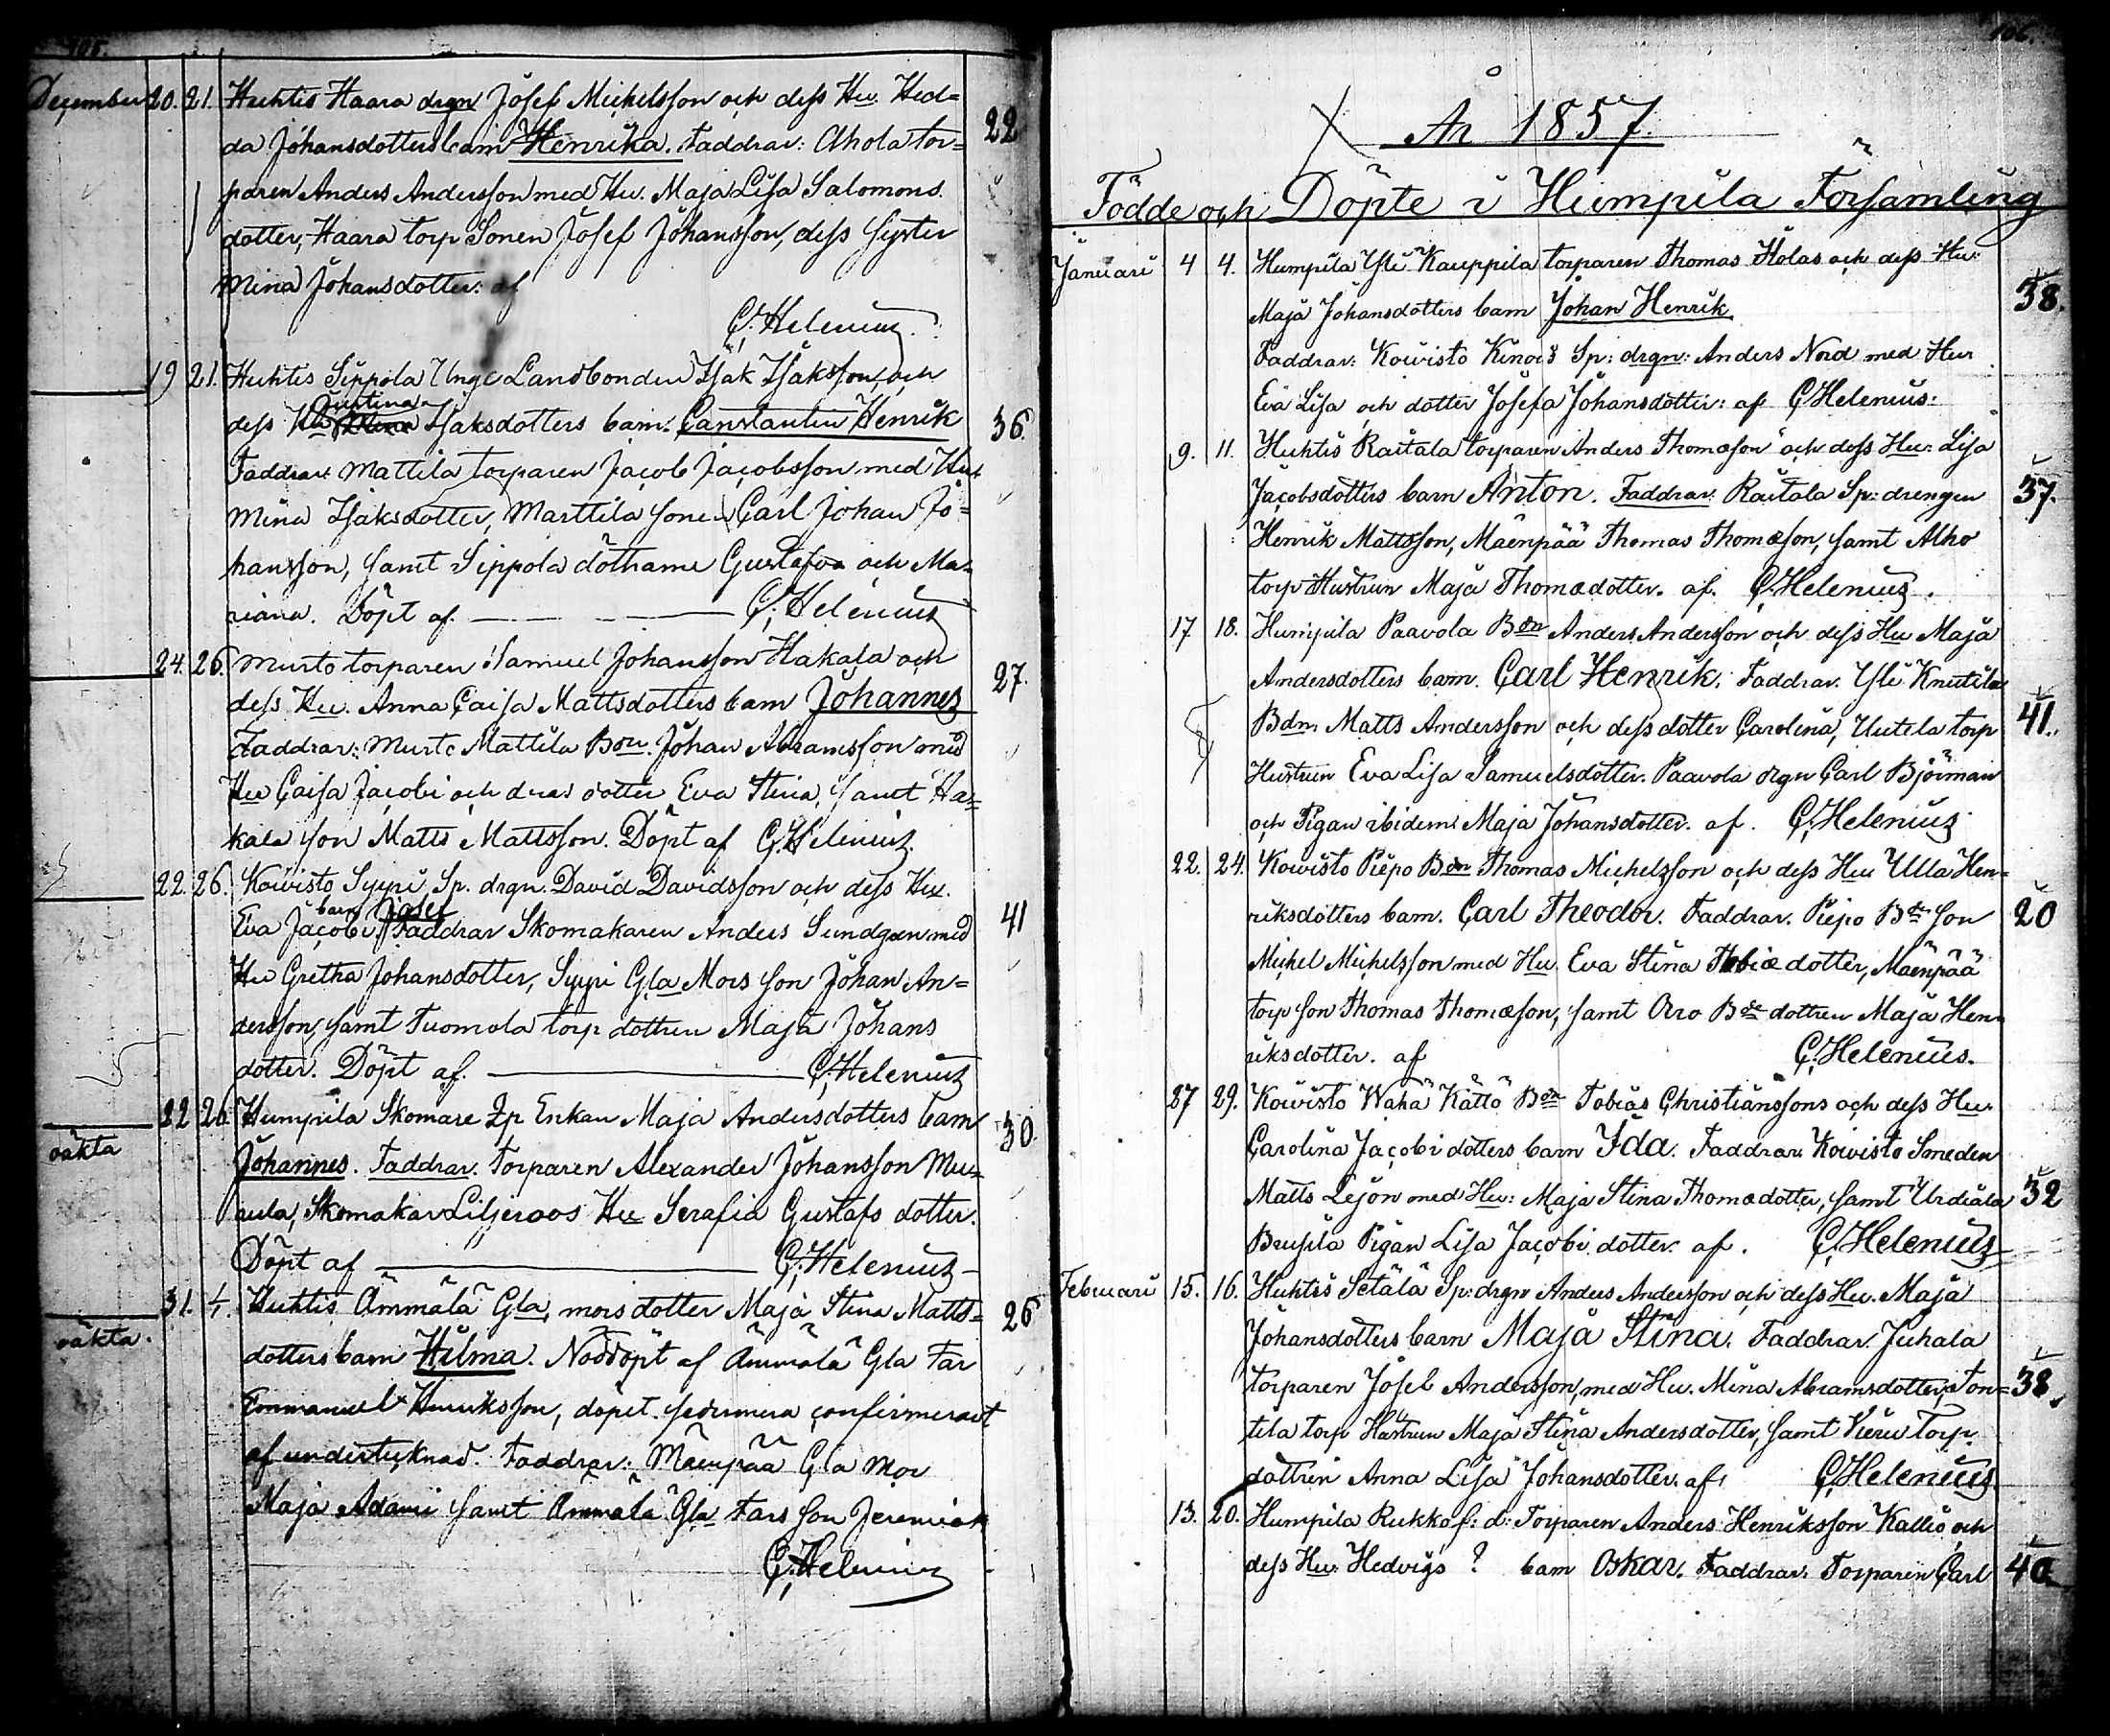 105.
December 20. 21. Huhtis Haara drgn Josef Michelsson och dess Hu. Hed= 22
da Johansdotters barn Henrika. Faddrar: Ahola tor=
paren Anders Andersson med Hu. Maja Lisa Salomons
dotter, Haara torp Sonen Josef Johansson, dess syster
Mina Johansdotter: af
C. Helenius.
19 21. Huhtis Sippola Unge Landbonden Isak Isaksson, och
dess Hu Justina Isaksdotters barn. Constantin Henrik 36.
Faddrar: Mattila torparen Jacob Jacobsson med Hu.
Mina Isaksdotter, Marttila sonen Carl Johan Jo=
hansson, samt Sippola döttrarne Gustafva och Ma=
riana. Döpt af. C. Helenius
24. 26. Murto torparen Samuel Johansson Hakala och 27.
dess Hu. Anna Caisa Mattsdotters barn Johannes
Faddrar: Murto Mattila Bon. Johan Abramsson med
Hu Caisa Jacobi och deras dotter Eva Stina, samt Ha=
kala son Matts Mattsson. Döpt af C. Helenius.
22. 26. Koivisto Syyri Sp. drgn. David Davidsson och dess Hu.
Eva Jacobi. barn Josef Faddrar Skomakaren Anders Sundgren med 41
Hu Gretha Johansdotter, Syyri Gla Mors son Johan An=
dersson, samt Tuomola torp dottren Maja Johans
dotter. Döpt af. C. Helenius
22 26 Humpila Skomare Ip Enkan Maja Andersdotters barn 30.
oäkta Johannes. Faddrar. Torparen Alexander Johansson Mu=
rula, Skomakar Liljeroos Hu Serafia Gustafs dotter.
Döpt af C. Helenius
31. 4. Huhtis Ämmälä Gla mors dotter Maja Stina Matts= 26
oäkta. dotters barn Hilma. Nöddöpt af Ämmälä Gla Far
Emmanuel Henriksson, döpet sedermera confirmeradt
af undertecknad. Faddrar: Mäenpää Gla Mor
Maja Adami samt Ämmälä Gla Fars son Jeremias
C. Helenius
106.
År 1857.
Födde och Döpte i Humpila Församling
Januari 4 4. Humpila Yli Kauppila torparen Thomas Holas och dess Hu: 38.
Maja Johansdotters barn Johan Henrik
Faddrar: Koivisto Sp: drgn: Anders Nord med Hu
Eva Lisa och dotter Josefa Johansdotter: af C. Helenius:
9. 11. Huhtis Raitala torparen Anders Thomasson och dess Hu: Lisa
Jacobsdotters barn Anton. Faddrar: Raitala Sp: drengen 37.
Henrik Mattsson, Mäenpää Thomas Thomæson, samt Alho
torp Hustrun Maja Thomædotter. af. C. Helenius.
17 18. Humpila Paavola Bdn Anders Andersson och dess Hu Maja
Andersdotters barn. Carl Henrik. Faddrar. Yli Knutila
Bdn. Matts Andersson och dess dotter Carolina, Uutela torp 41.
Hustrun Eva Lisa Samuelsdotter. Paavola drgn Carl Björman
och Pigan ibidem Maja Johansdotter. af. C. Helenius
22. 24. Koivisto Piepo Bdn Thomas Michelsson och dess Hu Ulla Hen=
riksdotters barn. Carl Theodor. Faddrar. Piepo Bde son 20
Michel Michelsson med Hu. Eva Stina Tobiædotter, Mäenpää
torp son Thomas Thomæson, samt Orro Bde dottren Maja Hen=
riksdotter. af C. Helenius.
27 29. Koivisto Waha Kättö Bdn Tobias Christianssons och dess Hu.
Carolina Jacobi dotters barn Ida. Faddrar. Koivisto Smeden
Matts Lejon med Hu: Maja Stina Thomædotter, samt Urdiala 32
Pigan Lisa Jacobi dotter. af. C. Helenius
Februari 15. 16. Huhtis Setälä Sp: drgn Anders Andersson och dess Hu. Maja
Johansdotters barn Maja Stina. Faddrar. Juhala
torparen Josef Andersson, med Hu. Mina Abramsdotter, Ton= 38.
tila torp Hustrun Maja Stina Andersdotter, samt Vieru Torp
dottren Anna Lisa Johansdotter. af. C. Helenius
13. 20. Humpila Rukka f: d: Torparen Anders Henriksson Kallio och
dess Hu. Hedvigs ? barn Oskar. Faddrar. Torparen Carl 40